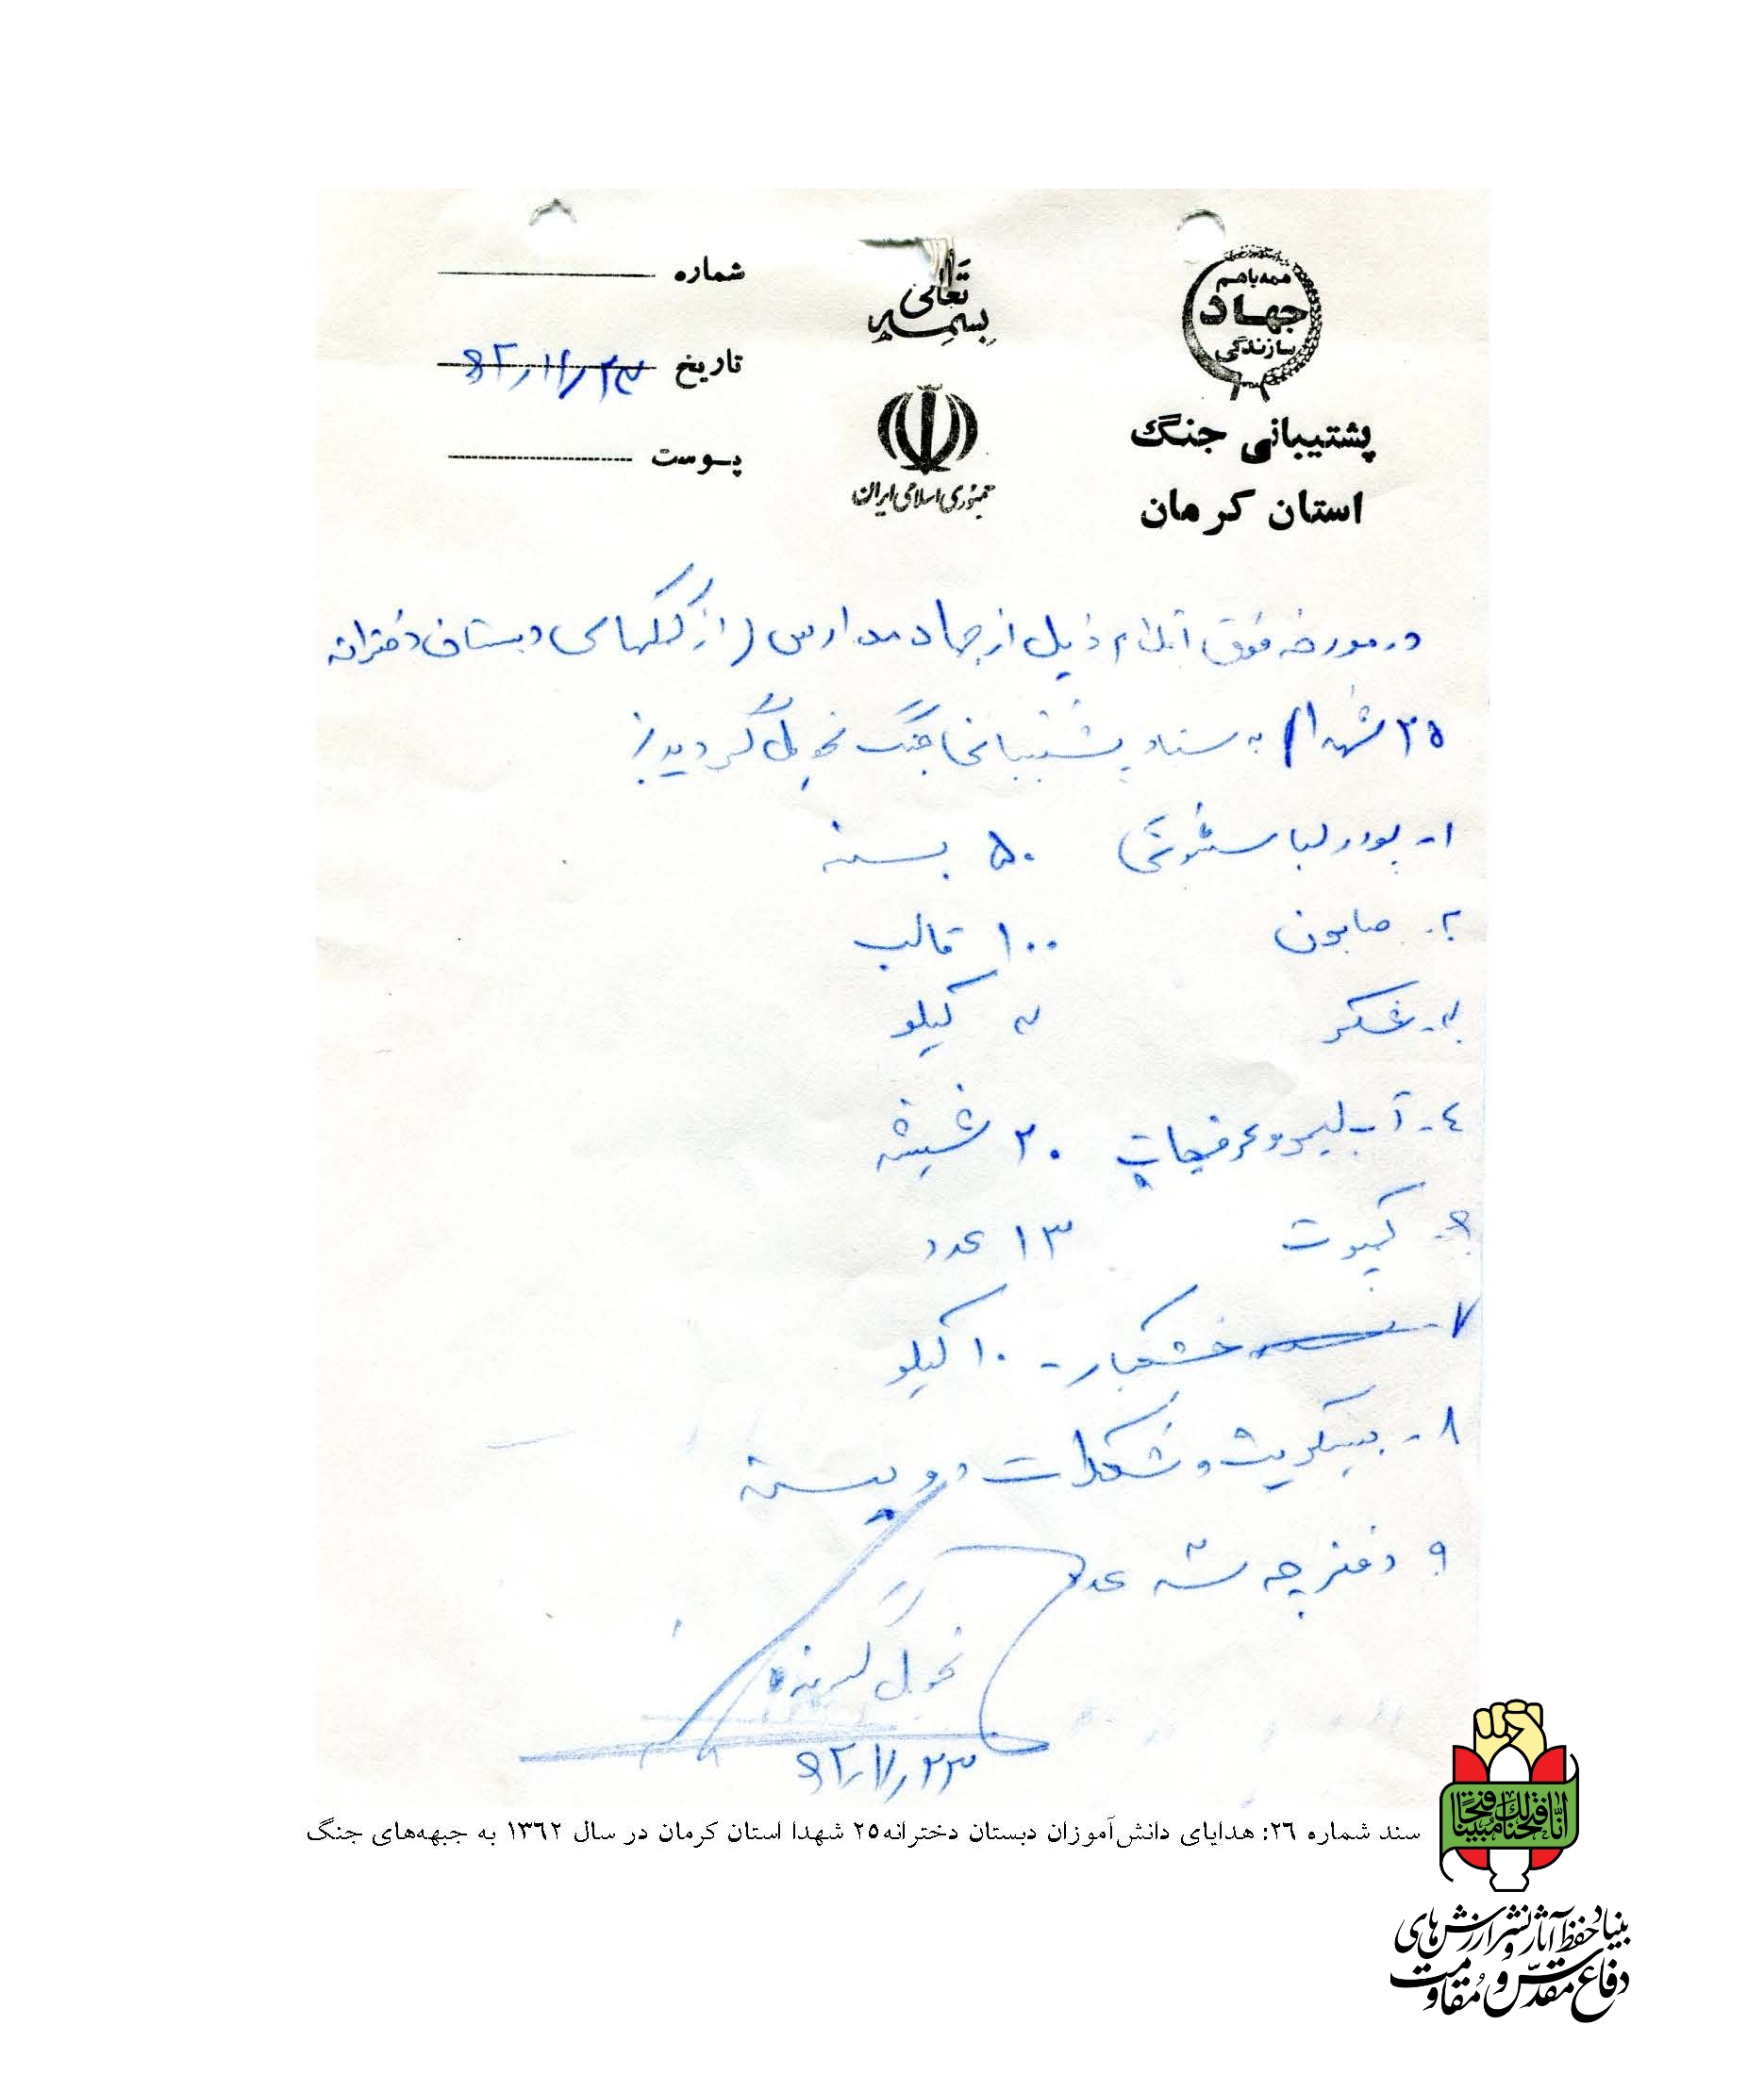 همه باهم
جهاد
سازندگی
پشتیبانی جنگ
استان کرمان
بسمه تعالی
جمهوری اسلامی ایران
شماره
تاریخ ۶۲/۱۱/۲۳
پیوست
در مورخه فوق اقلام ذیل از جهاد مدارس (از کمکهای دبستان دخترانه
۲۵ شهدا) به ستاد پشتیبانی جنگ تحویل گردید:
۱- پودر لباسشوئی ۵۰ بسته
۲- صابون ۱۰۰ قالب
۳- شکر ۳ کیلو
٤- آب لیمو و عرقیجات ۲۰ شیشه
۶- کمپوت ۱۳ عدد
۷- خشکبار - ۱۰ کیلو
۸- بیسکویت و شکلات دو بسته
۹ دفترچه سه عدد
تحویل گیرنده
۶۲/۱۱/۲۳
سند شماره ۲٦: هدایای دانش‌آموزان دبستان دخترانه۲۵ شهدا استان کرمان در سال ۱۳٦۲ به جبهه‌های جنگ
انا فتحنا لک فتحا مبینا
بنیاد حفظ آثار و نشر ارزش‌های
دفاع مقدّس و مقاومت